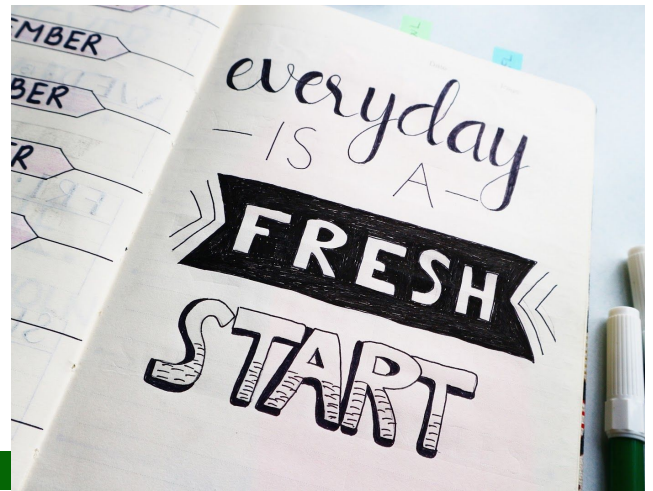 EMBER
BER
R
everyday
IS A
FRESH
START